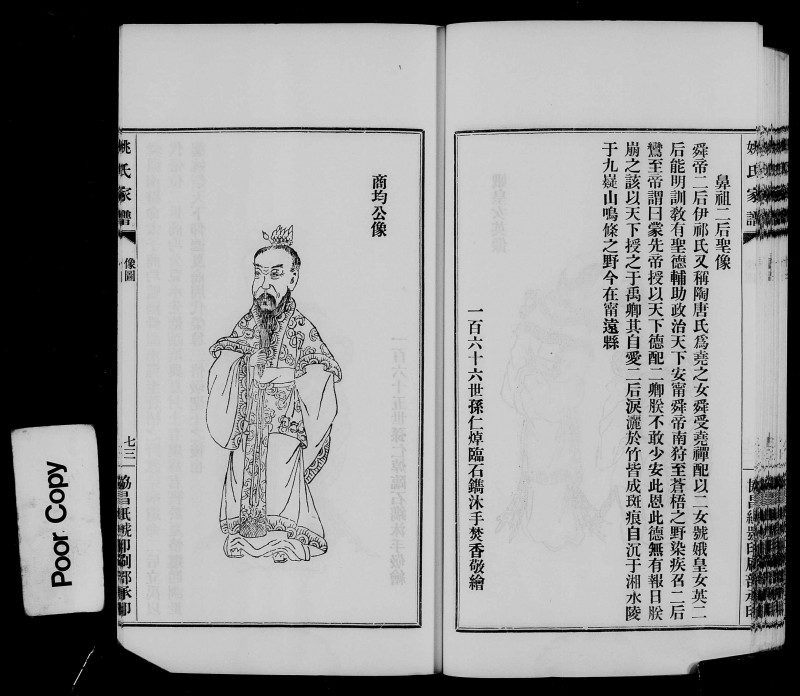 姚氏家譜
鼻祖二后聖像
舜帝二后伊祁氏又稱陶唐氏爲堯之女舜受堯禪配以二女號娥皇女英二
后能明訓敎有聖德輔助政治天下安甯舜帝南狩至蒼梧之野染疾召二后
鸞至帝謂曰蒙先帝授以天下德配二卿朕不敢少安此恩此德無有報日朕
崩之該以天下授之于禹卿其自愛二后淚灑於竹皆成斑痕自沉于湘水陵
于九嶷山鳴條之野今在甯遠縣
一百六十六世孫仁焯臨石鐫沐手焚香敬繪
商均公像
姚氏家譜
像圖
七三
協昌紙號印刷部承印
Poor Copy